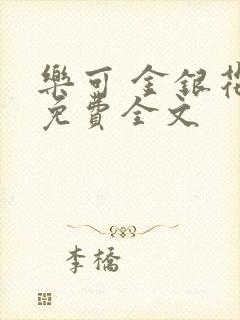 樂可 金銀花
免費全文
李橋